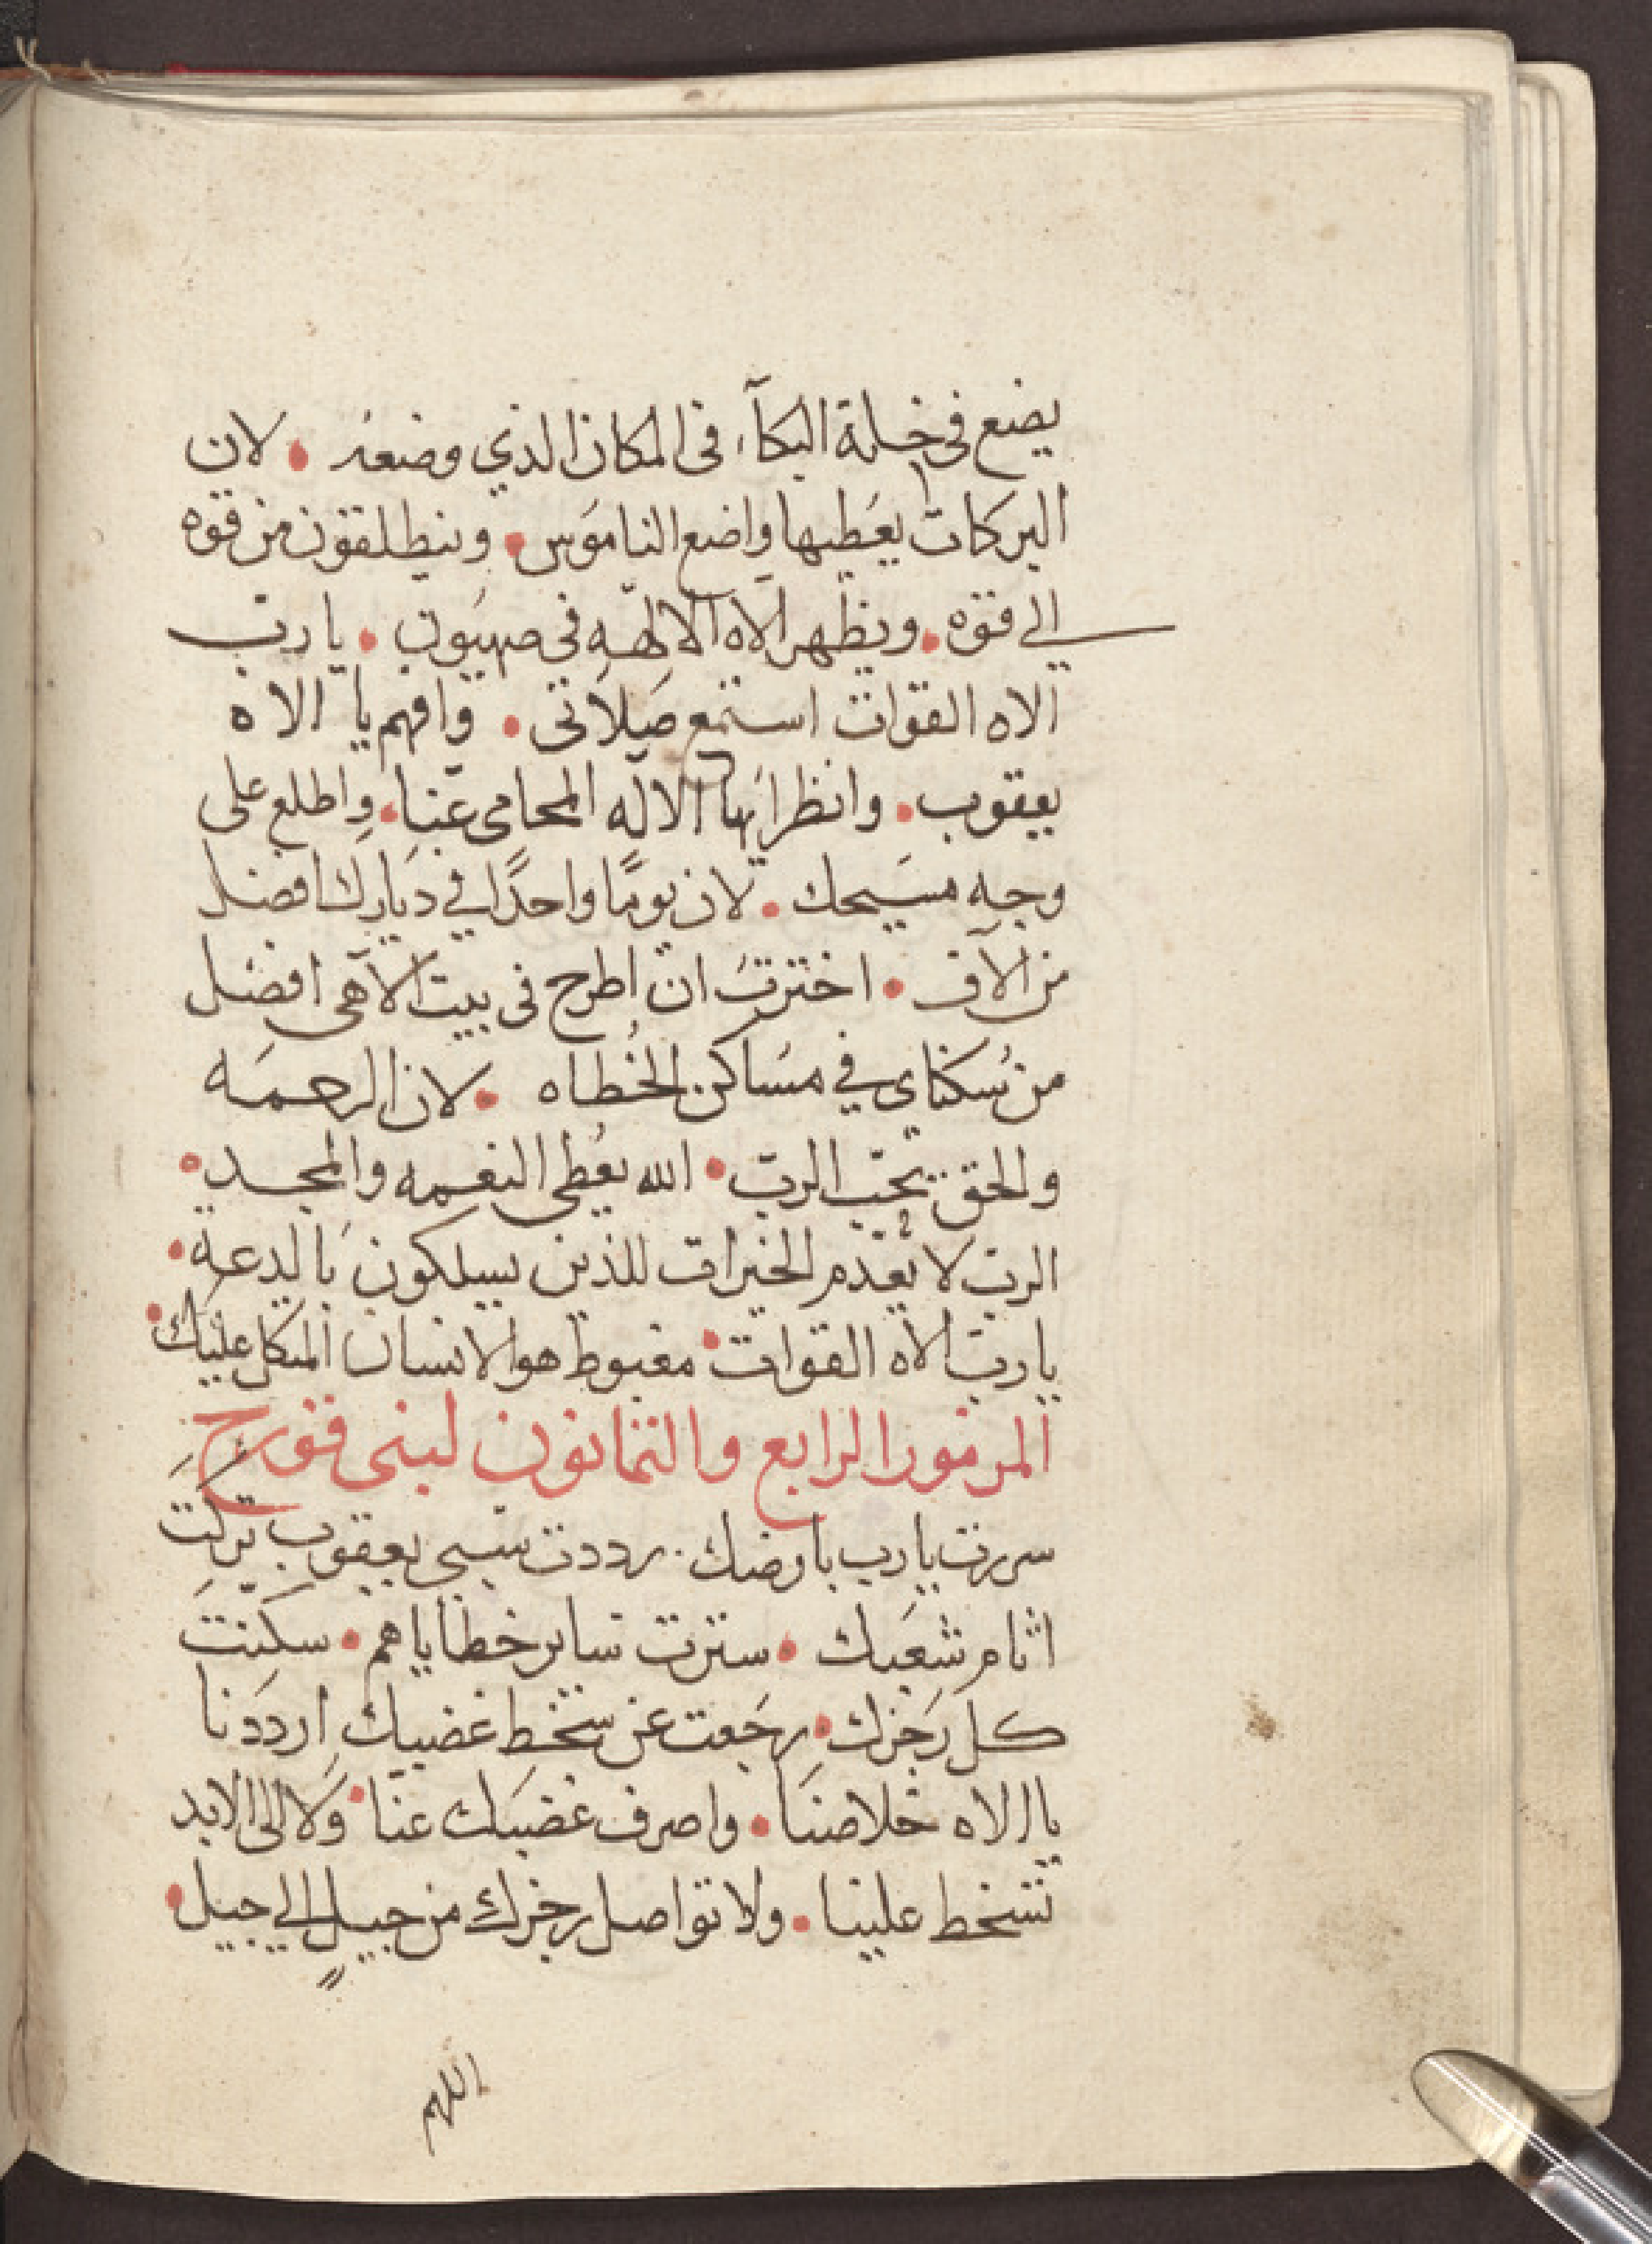 يضع في خلمة البكآء في المكان الذي وضعه • لان
البركات يعطيها واضع الناموس • وينطلقون من قوه
الي قوه • ويظهر الاه الالهه في صهيون • يا رب
الاه القوات استمع صلاتي • وافهم يا الاه
يعقوب • وانظر ايها الاله المحامي عنا • واطلع على
وجه مسيحك • لان يومًا واحدًا في ديارك افضل
من الآف • اخترت ان اطرح في بيت الاهي افضل
من سُكناي في مساكن الخُطاه • لان الرحمه
والحق يحب الرب • الله يعُطي النعمه والمجد •
الرب لا يعدم الخيرات للذين يسلكون بالدعة •
يا رب الاه القوات • مغبوط هو الانسان المتكل عليك •
المزمور الرابع والثمانون لبني قورح
سررت يا رب بارضك . رددت سبي يعقوب تركت
اثام شعبك • سترت ساير خطاياهم • سكنت
كل رجزك • رجعت عن سخط غضبك ارددنا
يا الاه خلاصنا • واصرف غضبك عنا • ولا الى الابد
تسخط علينا • ولا تواصل رجزك من جيلٍ الي جيل •
اللهم